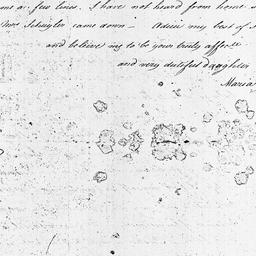 me a few lines. I have not heard from home
Mrs Schuyler came down – my best
and believe me to be your truly affte
and very dutiful daughter
Maria